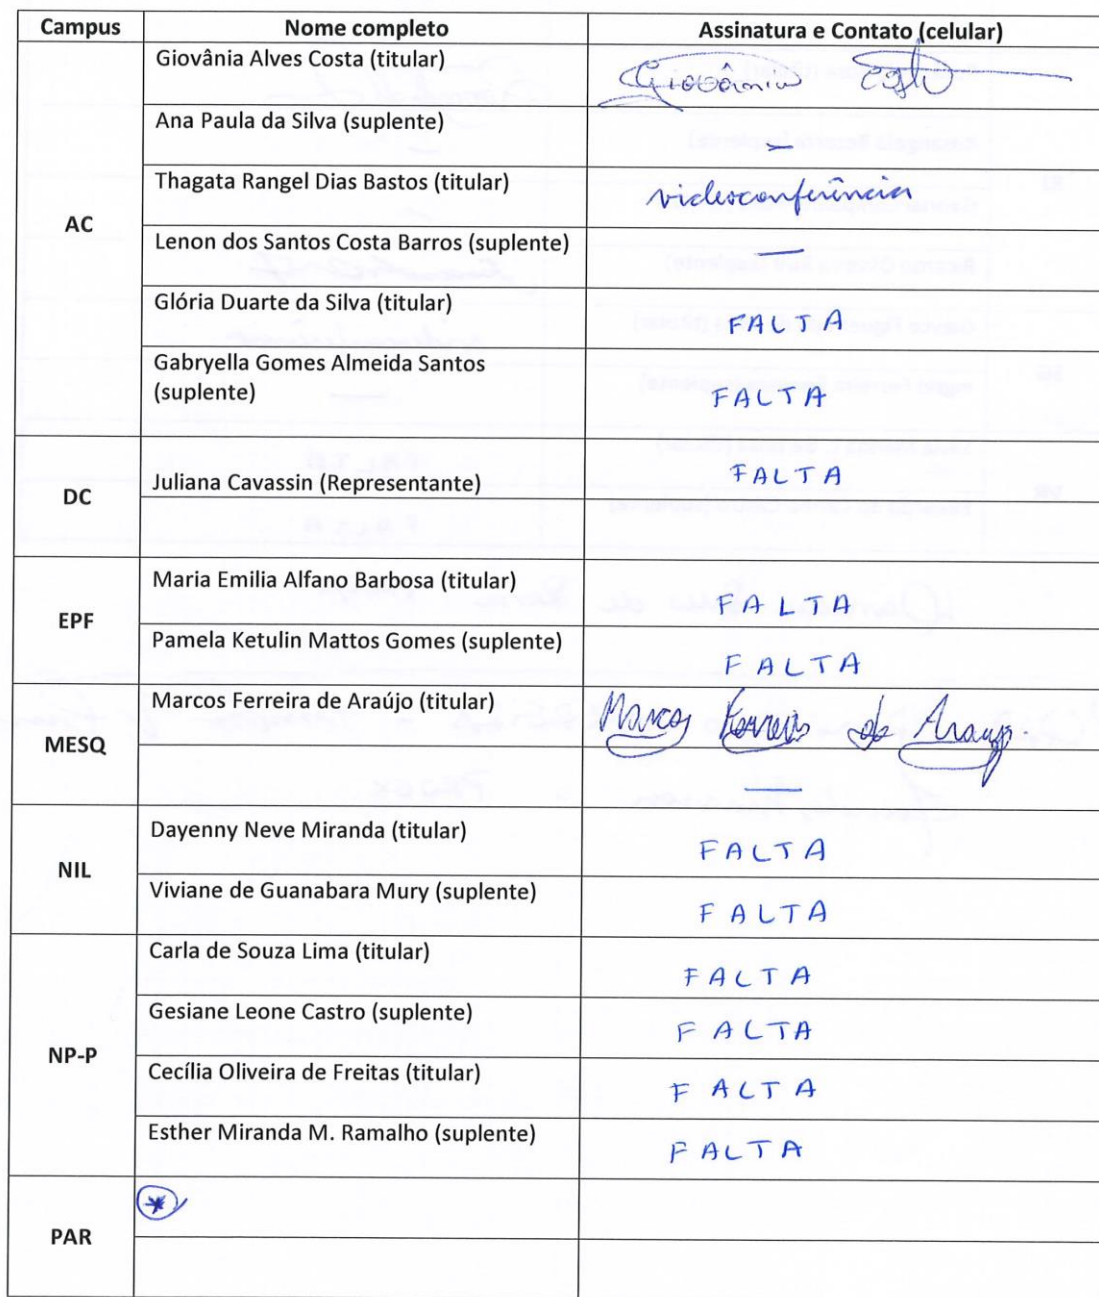 Campus Nome completo Assinatura e Contato (celular)
AC
Giovânia Alves Costa (titular) Giovânia Costa
Ana Paula da Silva (suplente) —
Thagata Rangel Dias Bastos (titular) videoconferência
Lenon dos Santos Costa Barros (suplente) —
Glória Duarte da Silva (titular) FALTA
Gabryella Gomes Almeida Santos
(suplente) FALTA
DC
Juliana Cavassin (Representante) FALTA
EPF
Maria Emilia Alfano Barbosa (titular) FALTA
Pamela Ketulin Mattos Gomes (suplente) FALTA
MESQ
Marcos Ferreira de Araújo (titular) Marcos Ferreira de Araujo
—
NIL
Dayenny Neve Miranda (titular) FALTA
Viviane de Guanabara Mury (suplente) FALTA
NP-P
Carla de Souza Lima (titular) FALTA
Gesiane Leone Castro (suplente) FALTA
Cecília Oliveira de Freitas (titular) FALTA
Esther Miranda M. Ramalho (suplente) FALTA
PAR
*